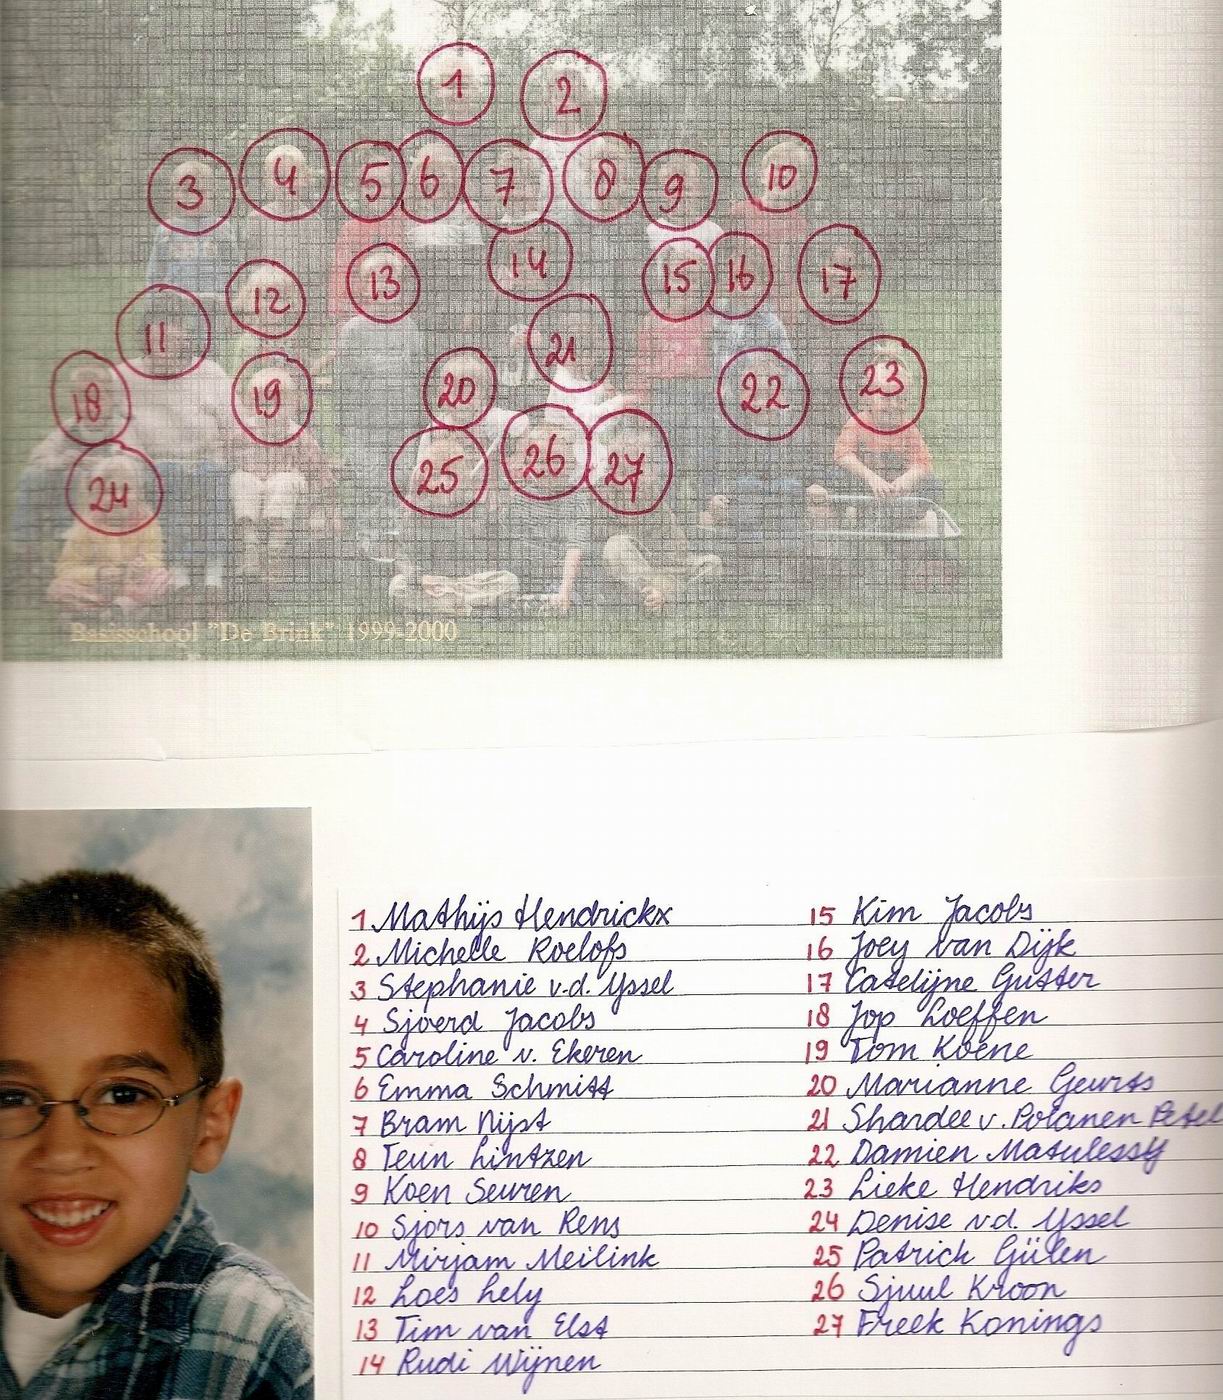 1 2
3 4 5 6 7 8 9 10
11 12 13 14 15 16 17
18 19 20 21 22 23
24 25 26 27
Basisschool "De Brink" 1999-2000
1 Mathijs Hendrickx
2 Michelle Roelofs
3 Stephanie v.d. Yssel
4 Sjoerd Jacobs
5 Caroline v. Ekeren
6 Emma Schmitt
7 Bram Nijst
8 Teun Lintzen
9 Koen Seuren
10 Sjors van Rens
11 Mirjam Meilink
12 Loes Lely
13 Tim van Elst
14 Rudi Wijnen
15 Kim Jacobs
16 Joey van Dijk
17 Catelijne Gutter
18 Jop Loeffen
19 Tom Koene
20 Marianne Geurts
21 Shardee v. Polanen Petel
22 Damien Matulessy
23 Lieke Hendriks
24 Denise v.d. Yssel
25 Patrick Gülen
26 Sjuul Kroon
27 Freek Konings